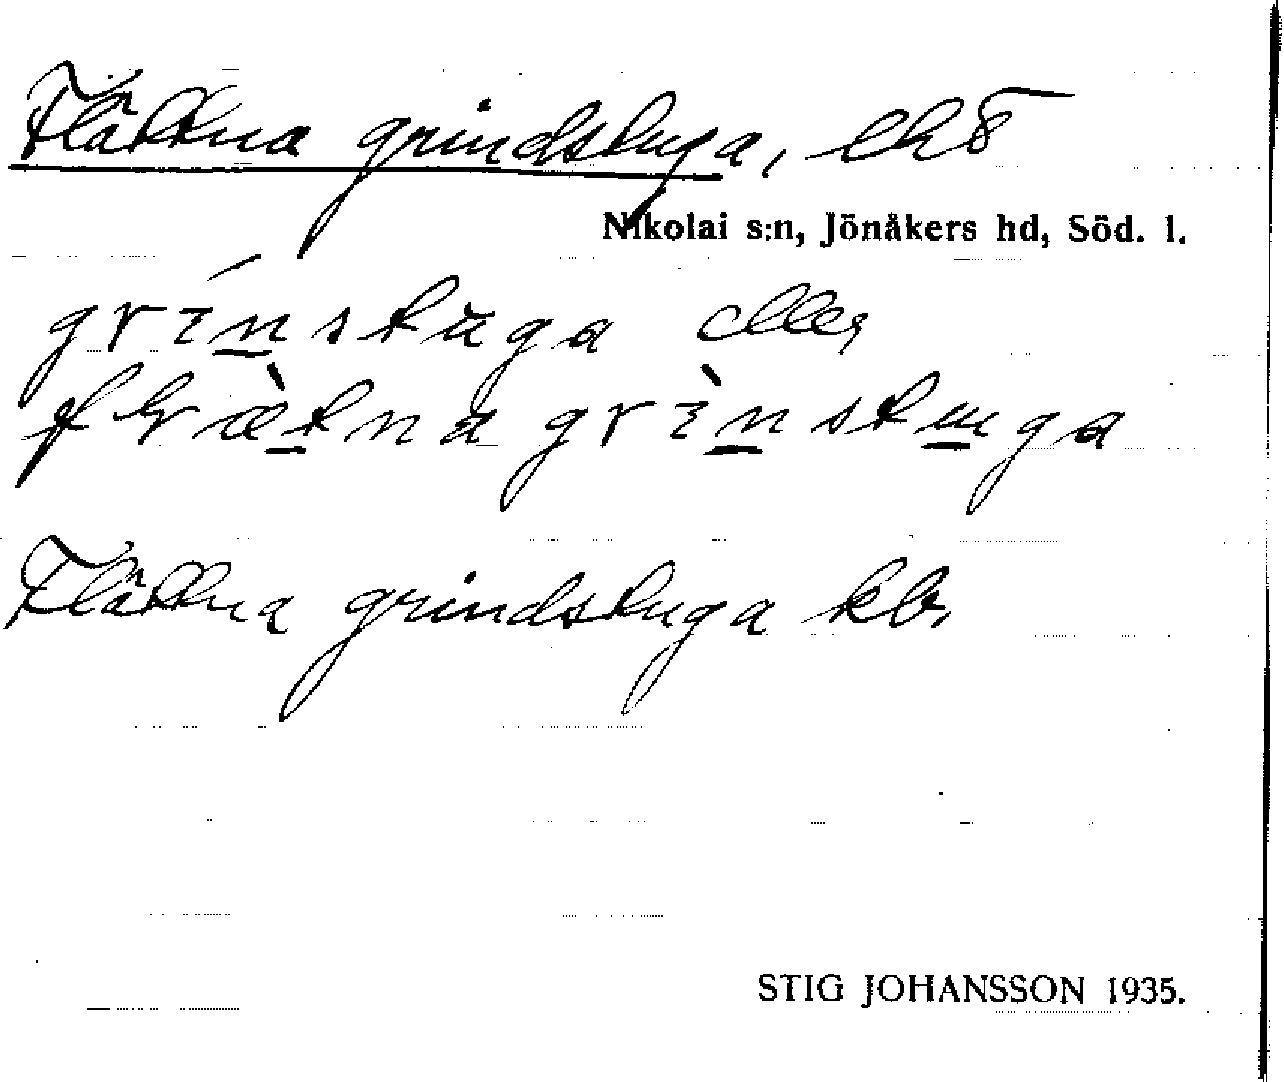 Flättna grindstuga, lht
Nikolai s:n, Jönåkers hd, Söd. l.
grinstuga eller
flætna grinstuga
Flättna grindstuga kb.
STIG JOHANSSON 1935.